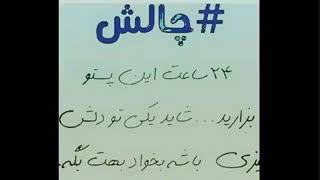 #چالش
۲۴ ساعت این پستو
بزارید... شاید یکی تو دلش
یزی باشه بخواد بهت بگه.